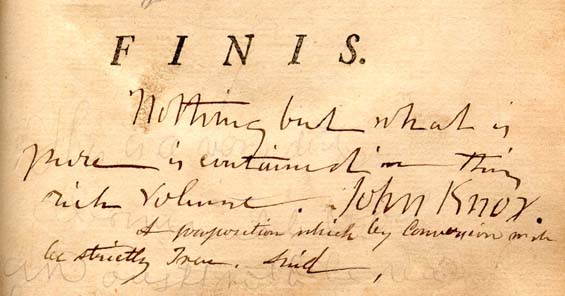 FINIS.
Nothing but what is
pure is contained in this
rich Volume. John Knox.
A proposition which by Conversion may
be strictly True.